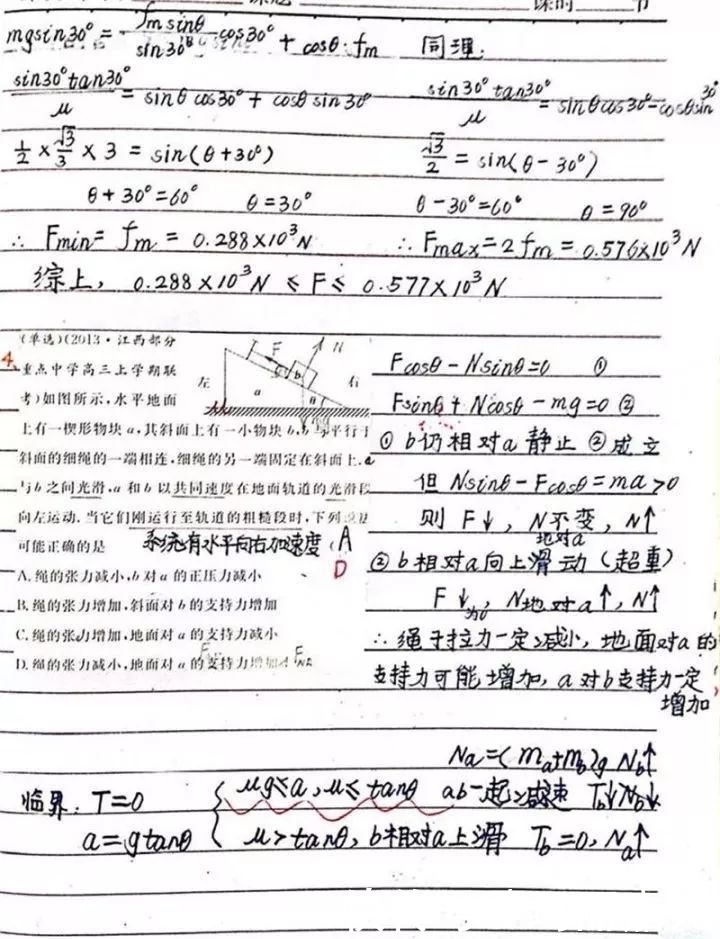 课时 节
mgsin30° = fm sinθ / sin30° cos30° + cosθ·fm 同理:
sin30°tan30° / μ = sinθcos30° + cosθsin30° sin30°tan30° / μ = sinθcos30° - cosθsin30°
1/2 × √3/3 × 3 = sin(θ+30°) √3/2 = sin(θ-30°)
θ+30°=60° θ=30° θ-30°=60° θ=90°
∴ Fmin = fm = 0.288×10³N ∴ Fmax=2fm=0.576×10³N
综上, 0.288×10³N ≤ F ≤ 0.577×10³N
4.
(单选)(2013·江西部分
重点中学高三上学期联
考)如图所示,水平地面
上有一楔形物块a,其斜面上有一小物块b,b与平行于
斜面的细绳的一端相连,细绳的另一端固定在斜面上.a
与b之间光滑,a和b以共同速度在地面轨道的光滑段
向左运动.当它们刚运行至轨道的粗糙段时,下列说法
可能正确的是 系统有水平向右加速度 (A
D
A.绳的张力减小,b对a的正压力减小
B.绳的张力增加,斜面对b的支持力增加
C.绳的张力增加,地面对a的支持力减小
D.绳的张力减小,地面对a的支持力增加
左 F N b a θ 右
Fcosθ-Nsinθ=0 ①
Fsinθ+Ncosθ-mg=0 ②
① b仍相对a静止 ②成立
但 Nsinθ-Fcosθ=ma>0
则 F↓, N地对a不变, N↑
② b相对a向上滑动(超重)
F↓为0, N地对a↑, N↑
∴ 绳子拉力一定减小, 地面对a的
支持力可能增加, a对b支持力一定
增加
Na=(ma+mb)g Nb↑
临界: T=0 μg≤a, μ≤tanθ ab一起减速 Tb↓Nb↓
a=gtanθ μ>tanθ, b相对a上滑 Tb=0, Na↑